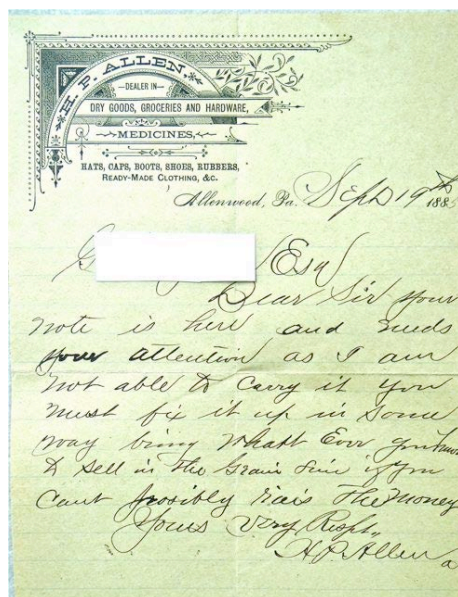 H. P. ALLEN,
—DEALER IN—
DRY GOODS, GROCERIES AND HARDWARE,
MEDICINES,
HATS, CAPS, BOOTS, SHOES, RUBBERS,
READY-MADE CLOTHING, &C.
Allenwood, Pa. Sept 19th 188
Esq
Dear Sir your
note is here and needs
your attention as I am
not able to carry it you
must fix it up in some
way bring whatt Ever you have
to sell in the Grain line if you
cant possibly rais the money
Yours Very Respt,,
H. P. Allen